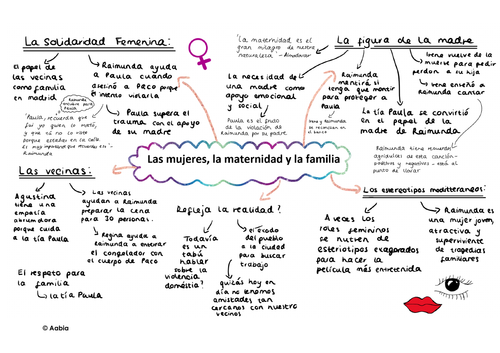 La Solidaridad Femenina:
El papel de
las vecinas
como familia
en madrid
Raimunda ayuda
a Paula cuando
asesinó a Paco porque
él intentó violarla
Raimunda
encubre para
Paula.
"Paula, recuerda que
fui yo quien lo mató,
y que tú no lo viste
porque estabas en la calle.
Es muy importante que recuerdes eso"-
Raimunda
Paula supera el
trauma con el apoyo
de su madre
"La maternidad es el
gran milagro de nuestra
naturaleza" - Almodóvar
La necesidad de
una madre como
apoyo emocional
y social
Paula es el fruto
de la violación de
Raimunda por su padre
La figura de la madre
Raimunda
mentirá si
tenga que mentir
para proteger a
Paula
Irene y Raimunda
se reconcilian en
el banco
Irene vuelve de la
muerte para pedir
perdón a su hija
Irene enseñó a
Raimunda cantar
La tía Paula se convirtió
en el papel de la
madre de Raimunda
Raimunda tiene recuerdos
agridulces de esta canción-
positivos y negativos - está al
punto de llorar
Las mujeres, la maternidad y la familia
Las vecinas:
Agustina
tiene una
empatía
abrumadora
porque cuida
a la tía Paula
Las vecinas
ayudan a Raimunda
preparar la cena
para 30 personas.
Regina ayuda a
Raimunda a enterar
el congelador con
el cuerpo de Paco
El respeto para
la familia
la tía Paula
Refleja la realidad?
Todavía
es un
tabú
hablar
sobre la
violencia
doméstica?
el éxodo
del pueblo
a la ciudad
para buscar
trabajo
quizás hoy en
día no tenemos
amistades tan
cercanas con nuestros
vecinos
Los estereotipos mediterráneos:
A veces los
roles femeninos
se nutren de
estereotipos exagerados
para hacer la
película más entretenida
Raimunda es
una mujer joven,
atractiva y
superviviente de
tragedias
familiares
© Aabla